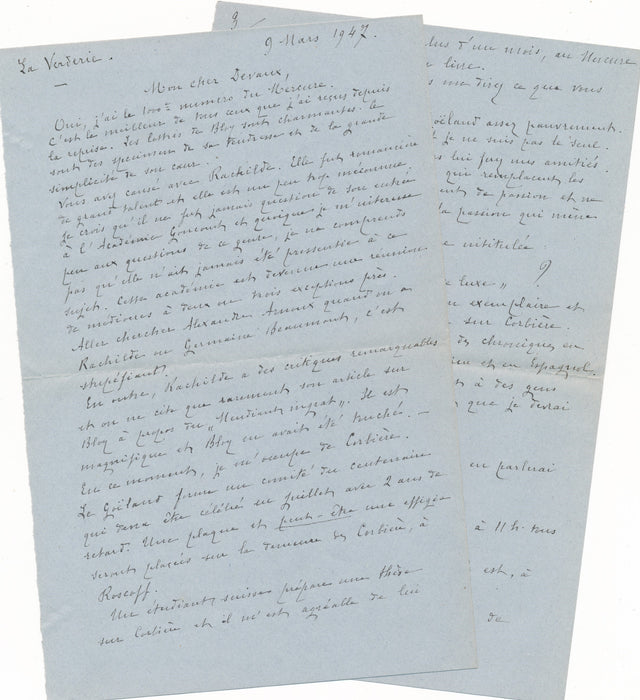 La Verderie.
9 Mars 1947.
Mon cher Devaux,
Oui, j'ai le 1000e numéro du Mercure.
C'est le meilleur de tous ceux que j'ai reçus depuis
la reprise. Les lettres de Bloy sont charmantes. Ce
sont des spécimens de sa tendresse et de la grande
simplicité de son cœur.
Vous avez causé avec Rachilde. Elle fut romancière
de grand talent et elle est un peu trop méconnue.
Je crois qu'il ne fut jamais question de son entrée
à l'Académie Goncourt et quoique je m'intéresse
peu aux questions de ce genre, je ne comprends
pas qu'elle n'ait jamais été pressentie à ce
sujet. Cette académie est devenue une réunion
de médiocres à deux ou trois exceptions près.
Aller chercher Alexandre Arnoux quand on a
Rachilde ou Germaine Beaumont, c'est
stupéfiant!
En outre, Rachilde a des critiques remarquables
et on ne cite que rarement son article sur
Bloy à propos du "Mendiant ingrat". Il est
magnifique et Bloy en avait été touché.—
En ce moment, je m'occupe de Corbière.
Le Goëland forme un comité du centenaire
qui devra être célébré en juillet avec 2 ans de
retard. Une plaque et peut-être une effigie
seront placées sur la demeure des Corbière, à
Roscoff.
Un étudiant suisse prépare une thèse
sur Corbière et il m'est agréable de lui
3
plus d'un mois, au Mercure
livre.
me direz ce que vous
Goëland assez pauvrement.
je ne suis pas le seul.
lui fais mes amitiés.
qui remplacent les
de passion et ne
la passion qui mène
intitulée
de luxe" ?
exemplaire et
sur Corbière.
des chroniques en
et en Espagnol.
à des gens
que je devrai
en parlerai
à 11 h. tous
est, à
de